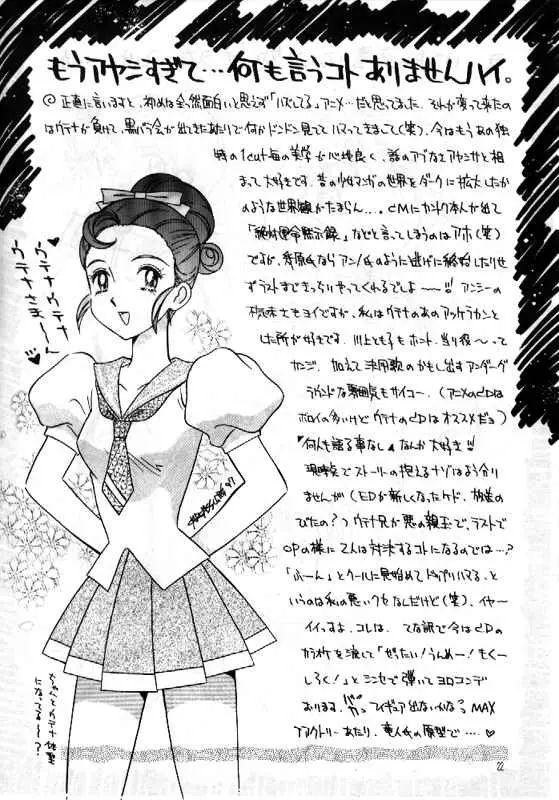 もうアヤシすぎて…何も言うコトありませんハイ。
◎正直に言いますと、初めは全然面白いと思えず「ハズしてる」アニメ…だと思ってました。それが変って来たの
はウテナが負けて、黒バラ会が出てきたあたりで何かドンドン見ててハマってきまして(笑)、今はもうあの独
特の1cut毎の美学が心地良く、話のアブなさアヤシサと相
まって大好きです。昔の少女マンガの世界をダークに拡大したか
のような世界観がたまらん…。CMにカントク本人が出て
「絶対運命黙示録」などと言ってしまうのはアホ(笑)
ですが、幾原氏ならアンノ氏のように逃げに終始したりせ
ずラストまできっちりやってくれるでしょ〜〜!!アンシーの
もヨイですが、私はウテナのあのアッケラカンと
した所が好きです。川上とも子もホント、当り役〜って
カンジ、加えて決闘歌のかもし出すアンダーグ
ラウンドな雰囲気もサイコー、(アニメのCDは
ボロイの多いけどウテナのCDはオススメだョ)
何人も語る事なしなんか大好き!!
現時点でストーリーの抱えるナゾはよう分り
ませんが(EDが新しくなったケド、樹璃の
びたの?)ウテナ兄が悪の親玉で、ラストで
OPの様に2人は対決するコトになるのでは…?
「ふーん」とクールに見始めてドップリハマる、と
いうのは私の悪いクセなんだけど(笑)、イヤー
イイっすよ、コレは、てな訳で今はCDの
カラオケを流して「ぜったい!うんめー!もくー
しろく!」とシンセで弾いてヨロコンデ
おります。フィギュア出ないかなっ MAX
ファクトリーあたり、竜人氏の原型で……♥
ウテナウテナ
ウテナさま〜〜ん
'97
ちょっとウテナ体型
になってる〜?
22